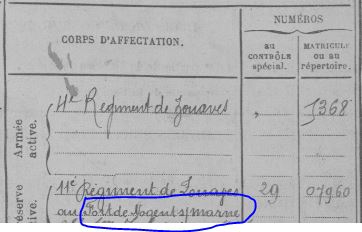 NUMÉROS
CORPS D'AFFECTATION.
au CONTRÔLE spécial.
MATRICULE ou au répertoire.
Armée active.
4e Régiment de Zouaves , 1368
éserve tive.
11e Régiment de Zouaves 29 07960
au Fort de Nogent s/ marne